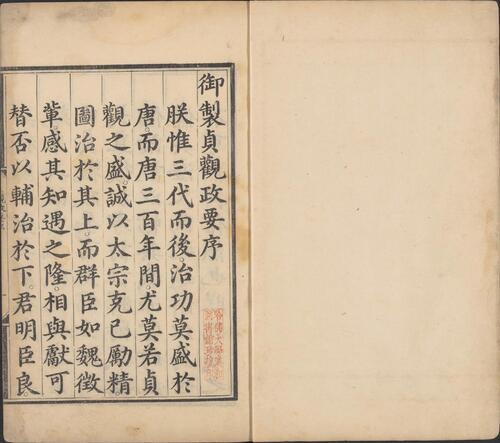 御製貞觀政要序
朕惟三代而後。治功莫盛於
唐。而唐三百年間。尤莫若貞
觀之盛。誠以太宗克己勵精
圖治於其上。而群臣如魏徵
輩感其知遇之隆。相與獻可
替否以輔治於下。君明臣良。